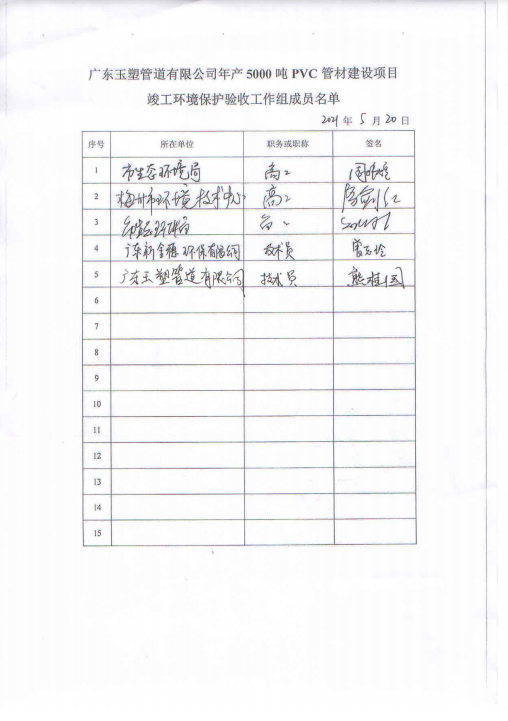 广东玉塑管道有限公司年产 5000 吨 PVC 管材建设项目
竣工环境保护验收工作组成员名单
2021 年 5 月 20 日
序号 所在单位 职务或职称 签名
1 市生态环境局 高工
2 梅州市环境技术中心 高工
3
4 广东新金穗环保有限公司 技术员
5 广东玉塑管道有限公司 技术员 熊桂国
6
7
8
9
10
11
12
13
14
15